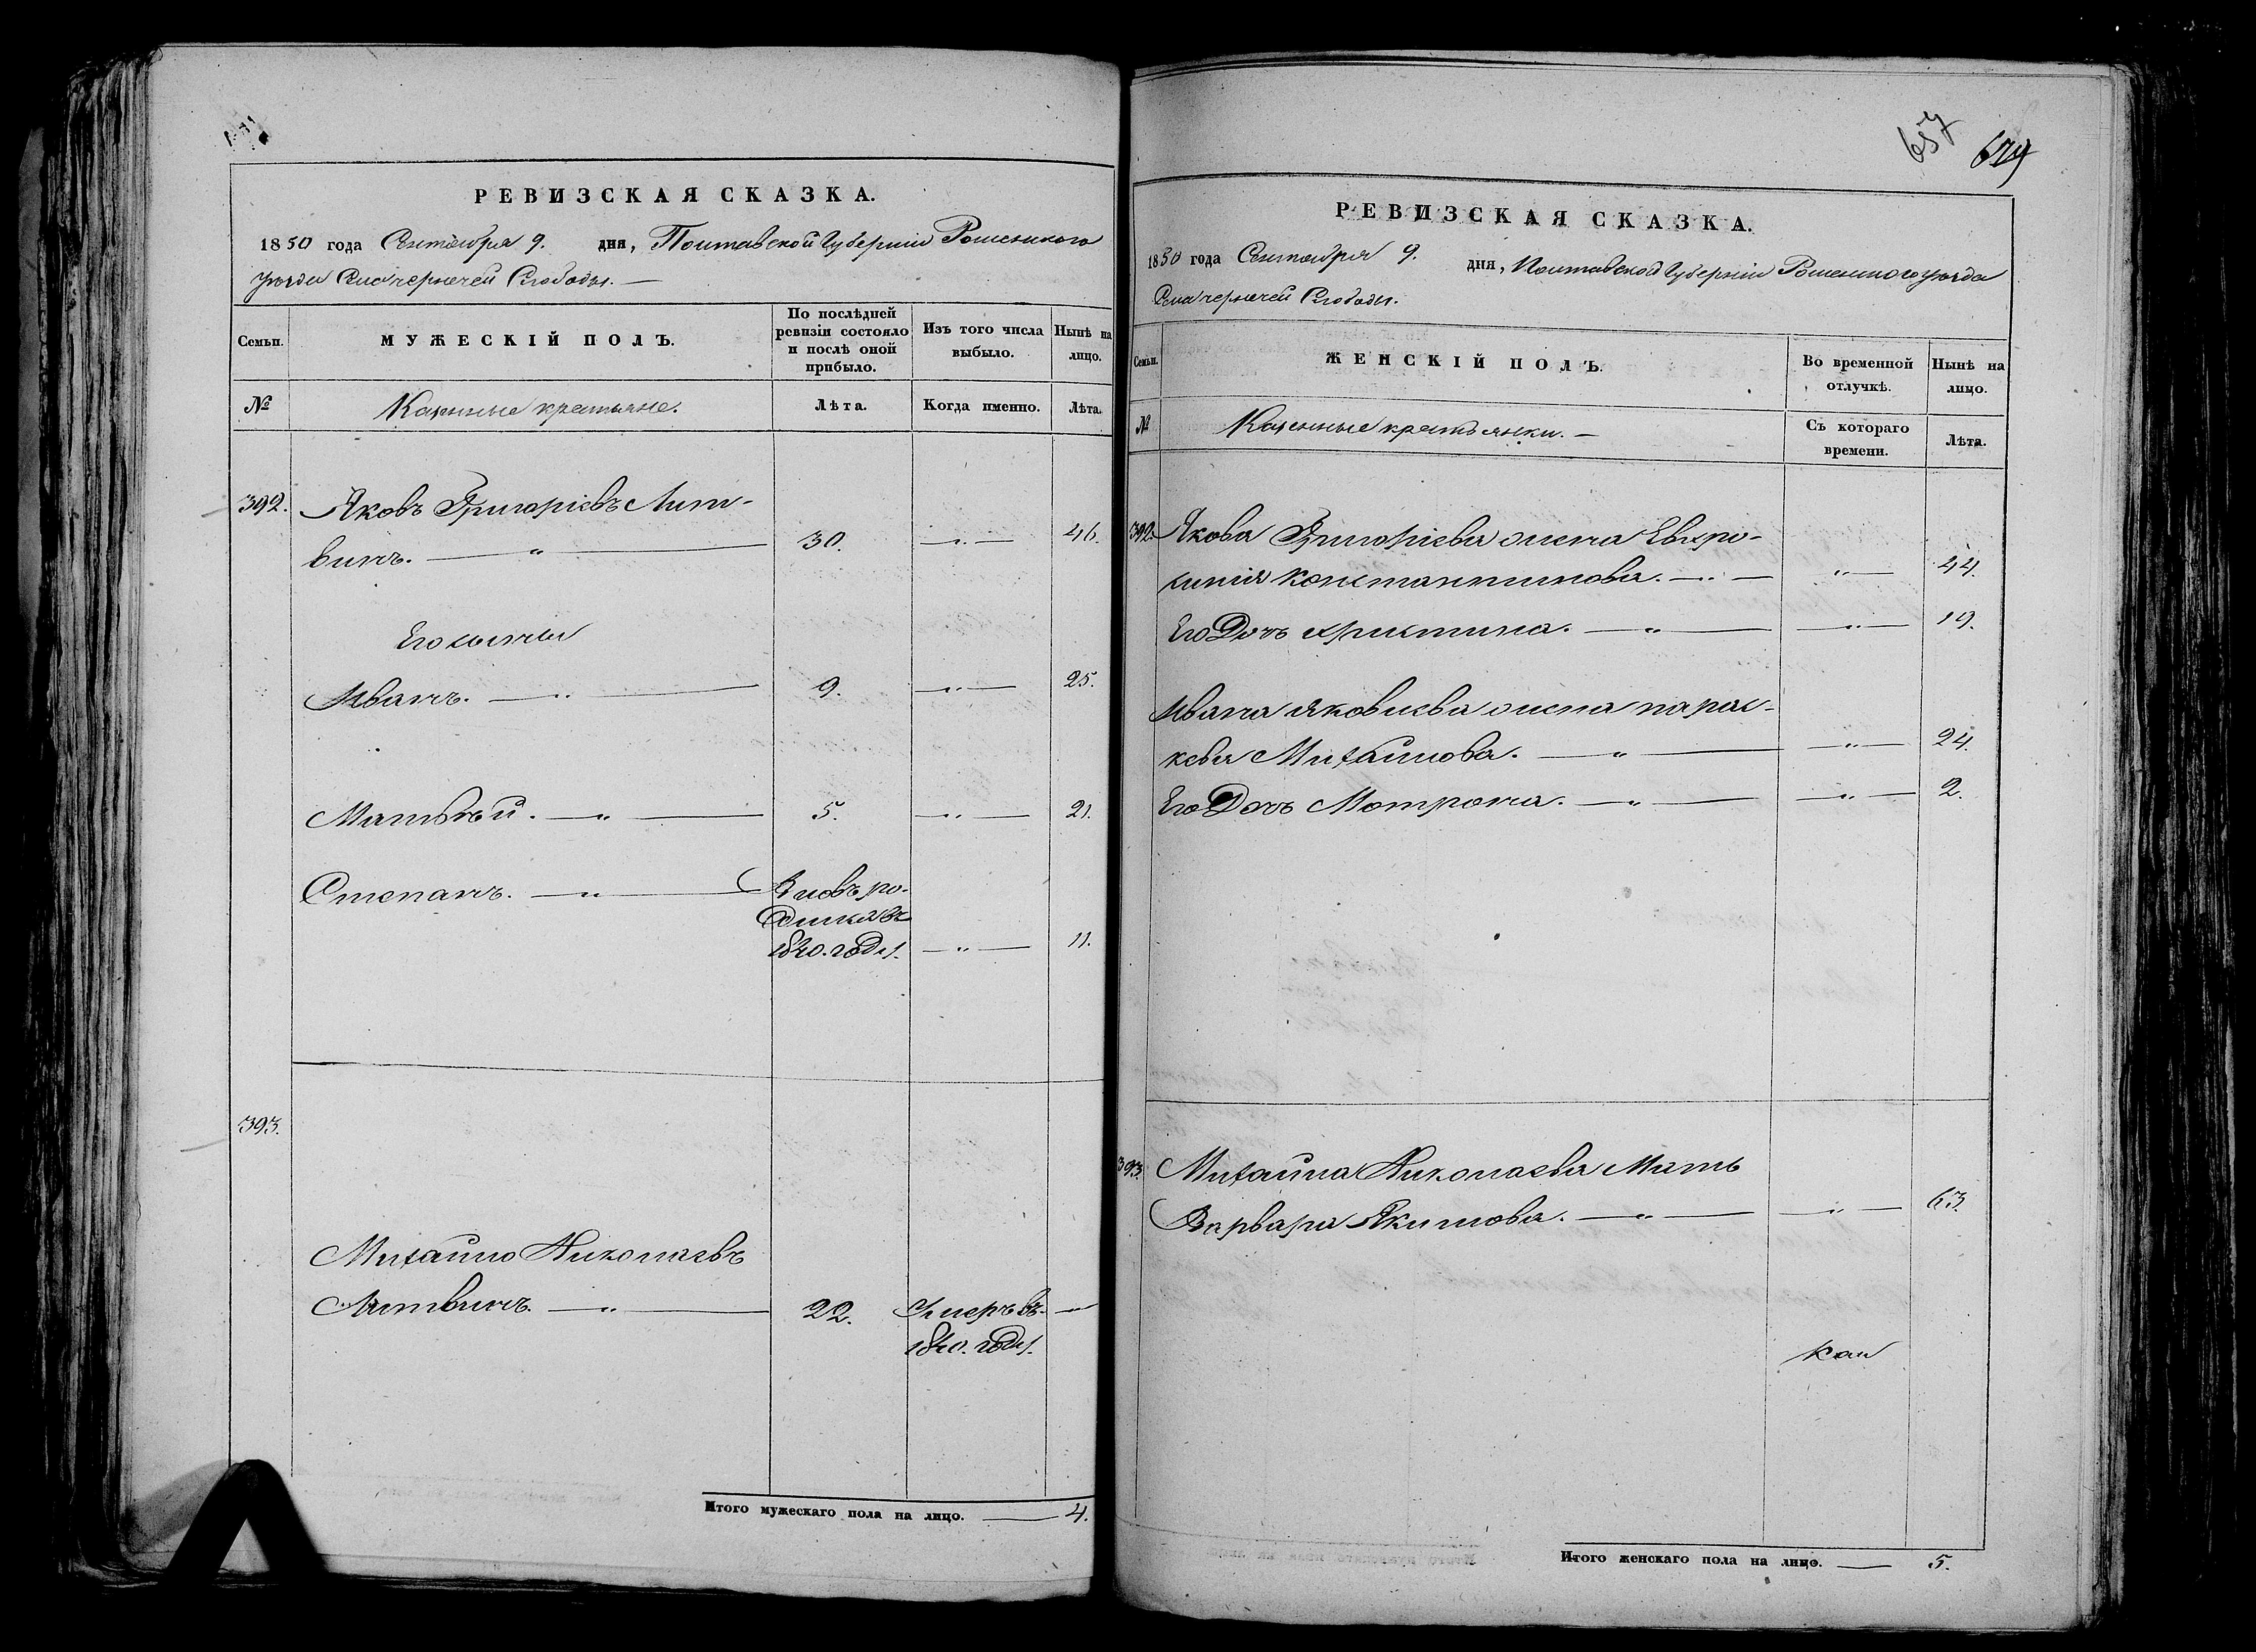 РЕВИЗСКАЯ СКАЗКА.
1850 года Сентября 9. дня, Полтавской Губерніи Роменского
уезда Села чернечей Слободы.
Семьи.
МУЖЕСКІЙ ПОЛЪ.
По послѣдней
ревизіи состояло
и послѣ оной
прибыло.
Изъ того числа
выбыло.
Нынѣ на
лицо.
№
Казенные крестьяне.
Лѣта.
Когда именно.
Лѣта.
392. Яковъ Григоріевъ Лит-
винъ. 30. 46.
Его сыны
Иванъ. 9. 25.
Матвѣй. 5. 21.
Степанъ. Вновъ ро-
дился въ
1840. году. 11.
393.
Михайло Николаевъ
Литвинъ. 22. Умеръ въ
1840. году.
Итого мужескаго пола на лицо. 4.
657 679
РЕВИЗСКАЯ СКАЗКА.
1850 года Сентября 9. дня, Полтавской Губерніи Роменского уезда
Села чернечей Слободы.
Семьи.
ЖЕНСКІЙ ПОЛЪ.
Во временной
отлучкѣ.
Нынѣ на
лицо.
№
Казенные крестьянки.
Съ котораго
времени.
Лѣта.
392. Якова Григоріева жена Евфро-
синія константинова. 44.
Его Дочь христина. 19.
Ивана яковлева жена парас-
кева Михайлова. 24.
Его Дочь Мотрона. 2.
393. Михайла Николаева Мать
Варвара Якимова. 63
Итого женскаго пола на лицо. 5.